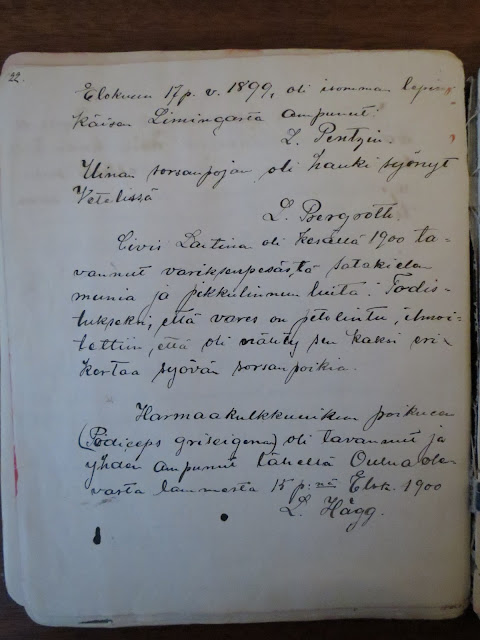 22.
Elokuun 17 p. v. 1899, oli isomman lepin-
käisen Limingasta ampunut
L. Pentzin.
Uinan sorsanpojan oli hauki syönyt
Vetelissä
L. Bergroth
Civis Laitina oli kesällä 1900 ta-
vannut variksenpesästä satakielen
munia ja pikkulinnun luita. Todis-
tukseksi, että vares on petolintu, ilmoi-
tettiin, että oli nähty sen kaksi eri
kertaa syövän sorsanpoikia.
Harmaakulkkuuikun poikueen
(Podiceps griseigena) oli tavannut ja
yhden ampunut läheltä Oulua ole-
vasta lammesta 15 p:nä Elok. 1900
L. Hägg.